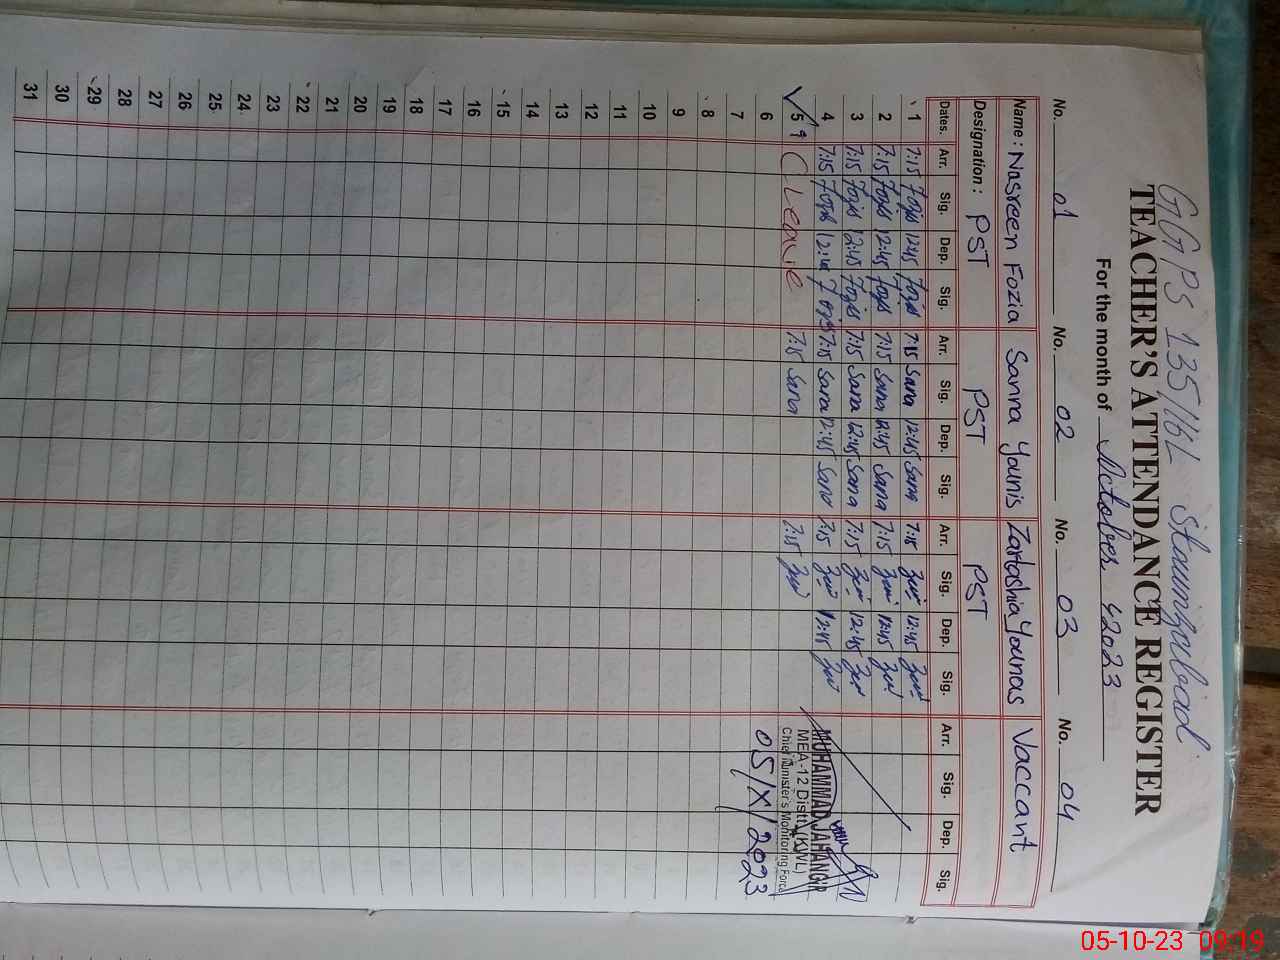 GGPS 135/16L
TEACHER'S ATTENDANCE REGISTER
For the month of Mctober, 2023
No. 01 No. 02 No. 03 No. 04
Name: Nasreen Fozia Sanra Younis Zartashia Younas Vaccant
Designation: PST PST PST
Dates. Arr. Sig. Dep. Sig. Arr. Sig. Dep. Sig. Arr. Sig. Dep. Sig. Arr. Sig. Dep. Sig.
1 7:15 Fozia 12:45 Fozia 7:15 Sana 12:45 Sana 7:15 12:45
2 7:15 Fozia 12:45 Fozia 7:15 Sana 12:45 Sana 7:15 12:45
3 7:15 Fozia 12:45 Fozia 7:15 Sana 12:45 Sana 7:15 12:45
4 7:15 Fozia 12:45 Fozia 7:15 Sana 12:45 Sana 7:15 12:45
5 CLeave 7:15 Sana 7:15
6
7
8
9
10
11
12
13
14
15
16
17
18
19
20
21
22
23
24
25
26
27
28
29
30
31
MUHAMMAD JAHANGIR
MEA-12 Distt. (KWL)
Chief Minister's Monitoring Force
05/X/2023
05-10-23 09:19